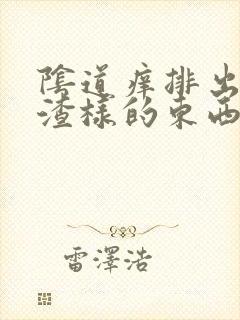 陰道痒排出
渣樣的東西
雷澤浩